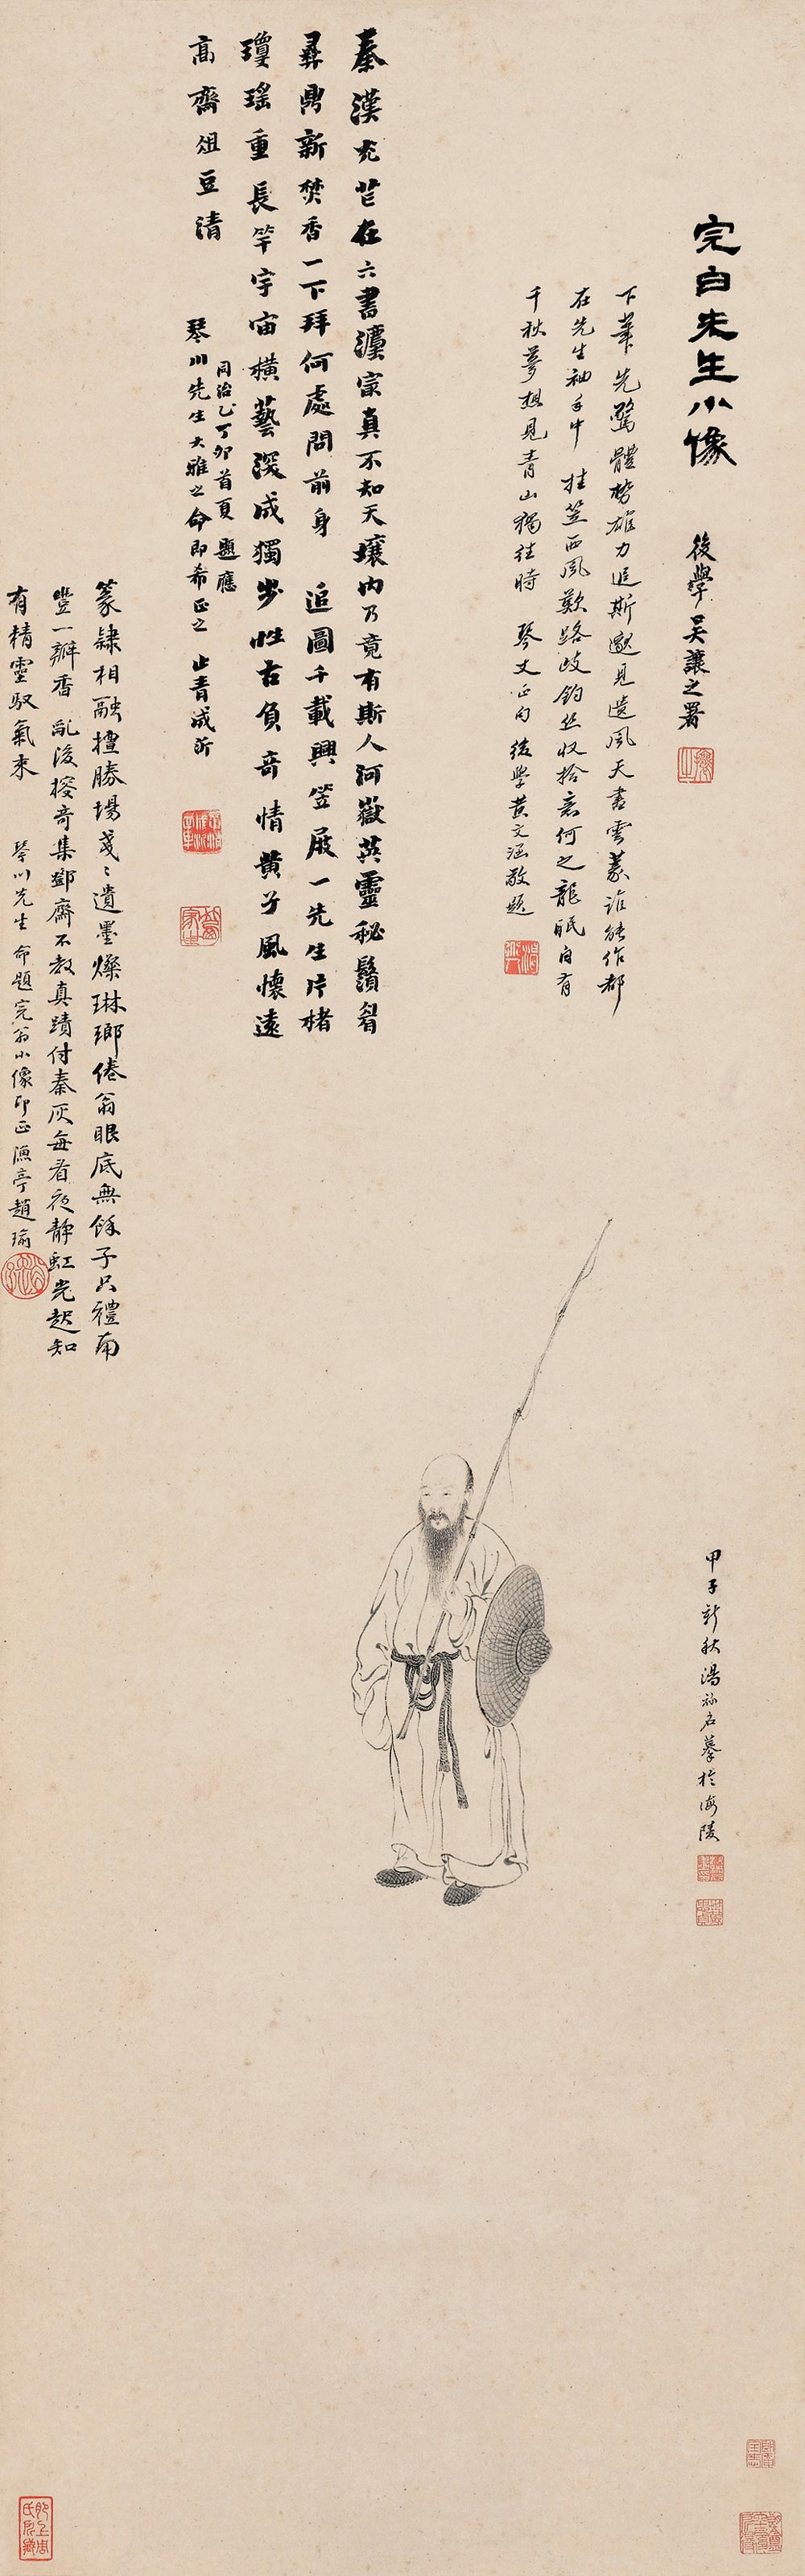 完白先生小像
後學吳讓之署
下筆先驚體勢雄力追斯邈見遺風天書雲篆誰能作都
在先生袖手中 挂笠西風歎路歧釣絲收拾意何之龍眠自有
千秋夢想見青山獨往時 琴丈正句 後學黃文涵敬題
秦漢光芒在六書灋寔真不知天壤內乃竟有斯人河嶽英靈秘鬚眉
彝鼎新焚香一下拜何處問前身 追圖千載興笠屐一先生片楮
瓊瑤重長竿宇宙橫藝深成獨步性古負奇情黃子風懷遠
高齋俎豆清
同治乙丁卯首夏題應
琴川先生大雅之命即希正之 止青成沂
篆隸相融擅勝場戔戔遺墨燦琳瑯倦翁眼底無餘子只禮南
豐一瓣香 亂後搜奇集鄧齋不教真蹟付秦灰每看夜靜虹光起知
有精靈馭氣來 琴川先生命題完翁小像即正漁亭趙瑜
甲子新秋湯祢名摹於海陵